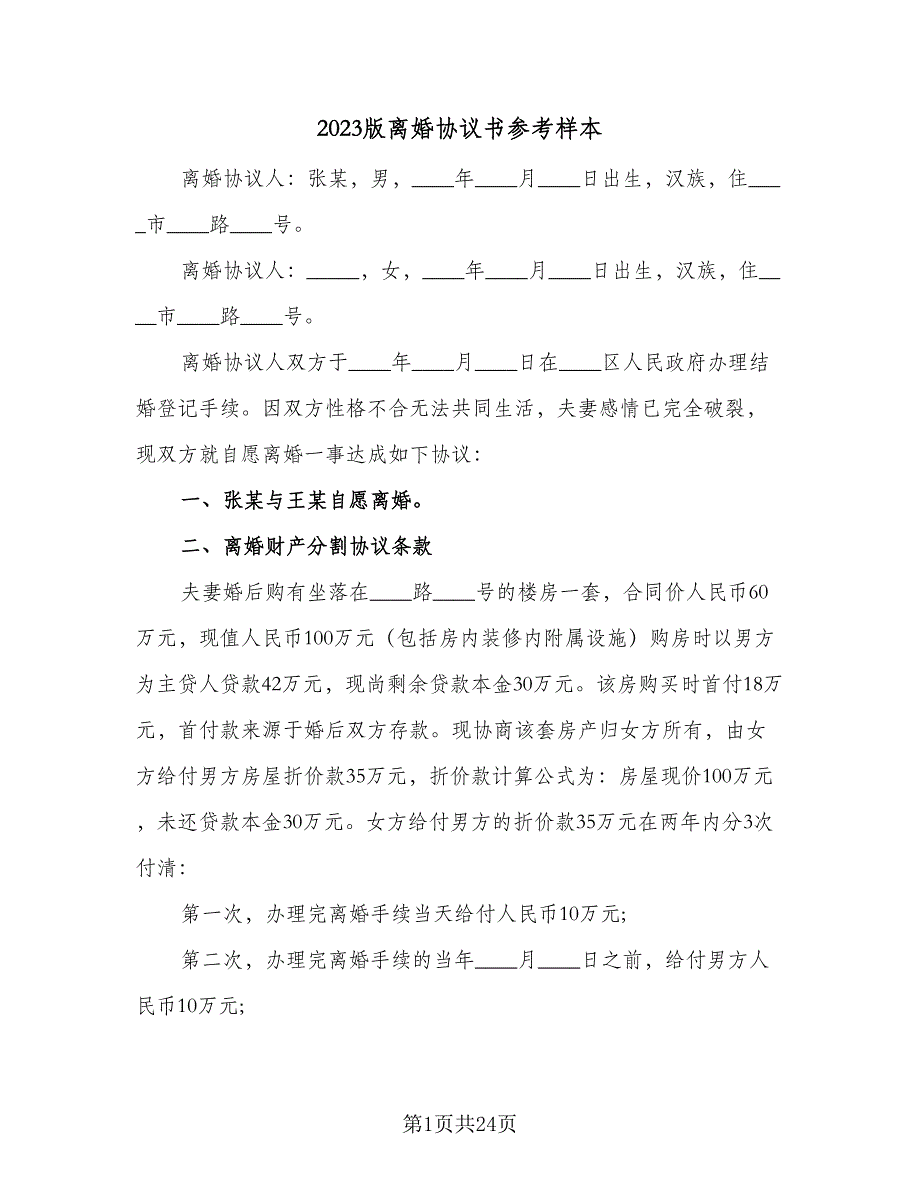 2023版离婚协议书参考样本
离婚协议人：张某，男，____年____月____日出生，汉族，住___
_市____路____号。
离婚协议人：_____，女，____年____月____日出生，汉族，住__
__市____路____号。
离婚协议人双方于____年____月____日在____区人民政府办理结
婚登记手续。因双方性格不合无法共同生活，夫妻感情已完全破裂，
现双方就自愿离婚一事达成如下协议：
一、张某与王某自愿离婚。
二、离婚财产分割协议条款
夫妻婚后购有坐落在____路____号的楼房一套，合同价人民币60
万元，现值人民币100万元（包括房内装修内附属设施）购房时以男方
为主贷人贷款42万元，现尚剩余贷款本金30万元。该房购买时首付18万
元，首付款来源于婚后双方存款。现协商该套房产归女方所有，由女
方给付男方房屋折价款35万元，折价款计算公式为：房屋现价100万元
，未还贷款本金30万元。女方给付男方的折价款35万元在两年内分3次
付清：
第一次，办理完离婚手续当天给付人民币10万元;
第二次，办理完离婚手续的当年____月____日之前，给付男方人
民币10万元;
第1页共24页